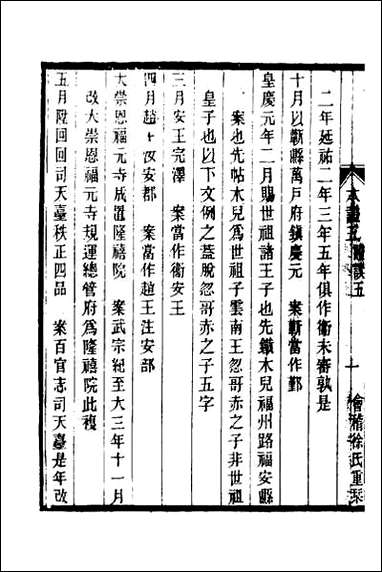 本證五 證誤五 十 會稽徐氏重栞
二年延祐二年三年五年俱作衞未審孰是
十月以蘄縣萬戶府鎮慶元 案蘄當作鄞
皇慶元年二月賜世祖諸王子也先鐵木兒福州路福安縣
案也先帖木兒爲世祖子雲南王忽哥赤之子非世祖
皇子也以下文例之蓋脫忽哥赤之子五字
三月安王完澤 案當作衞安王
四月趙 汝安郡 案當作趙王注安部
大崇恩福元寺成置隆禧院 案武宗紀至大三年十一月
改大崇恩福元寺規運總管府爲隆禧院此複
五月陞回回司天臺秩正四品 案百官志司天臺是年改